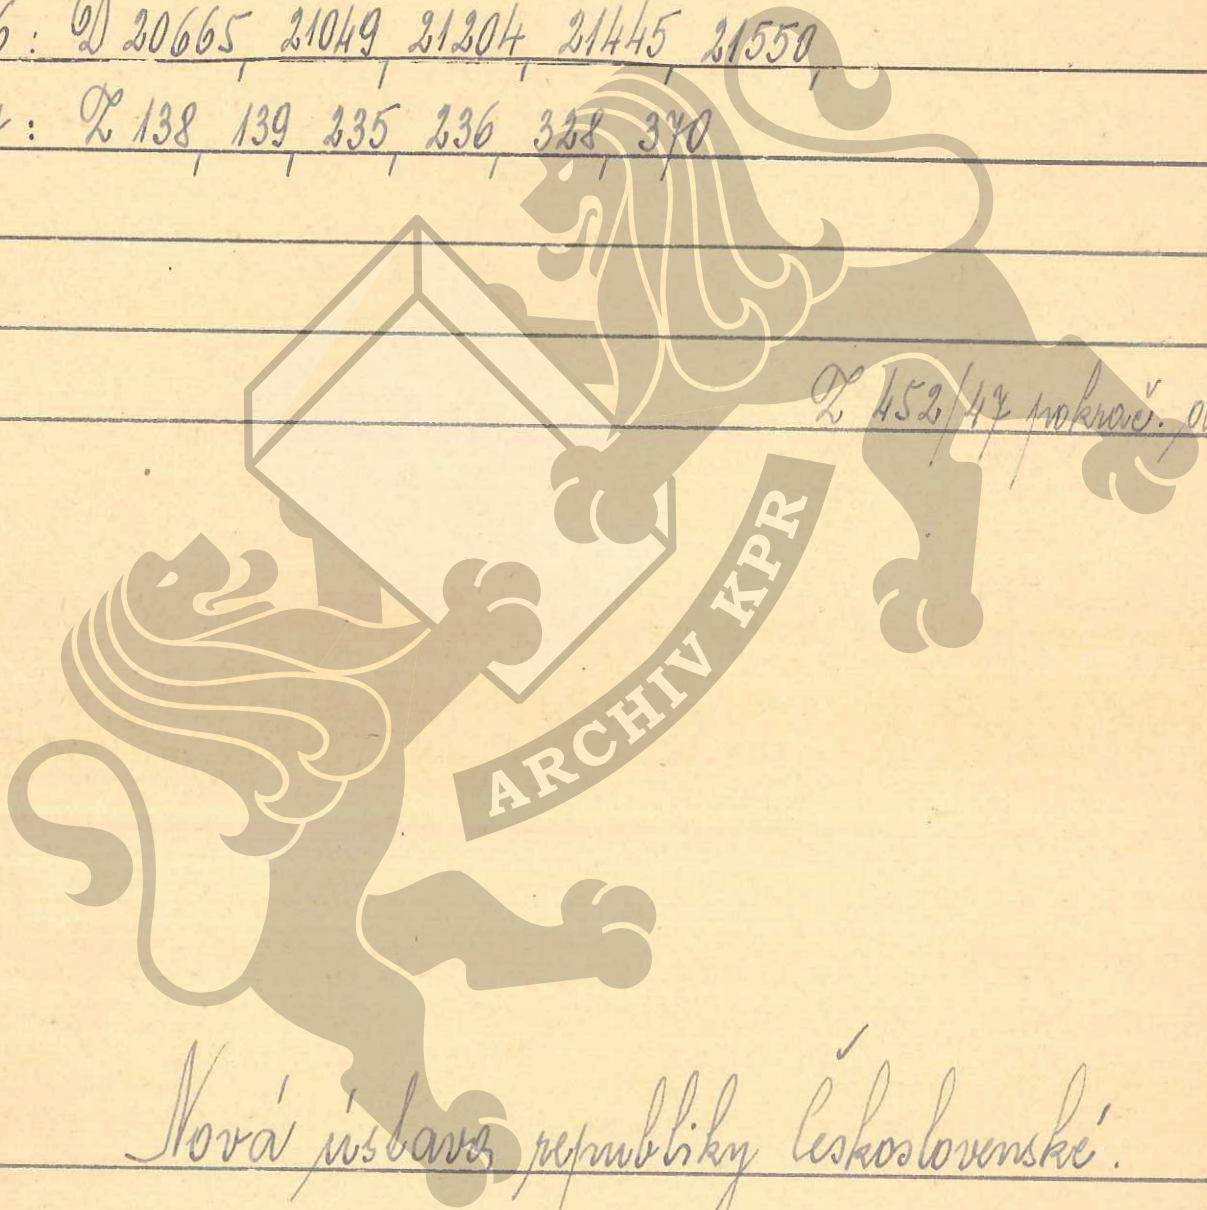 6: D 20665, 21049, 21204, 21445, 21550,
: Z 138, 139, 235, 236, 328, 370
Z 452/47 pokrač.
ARCHIV KPR
Nová ústava republiky Československé.